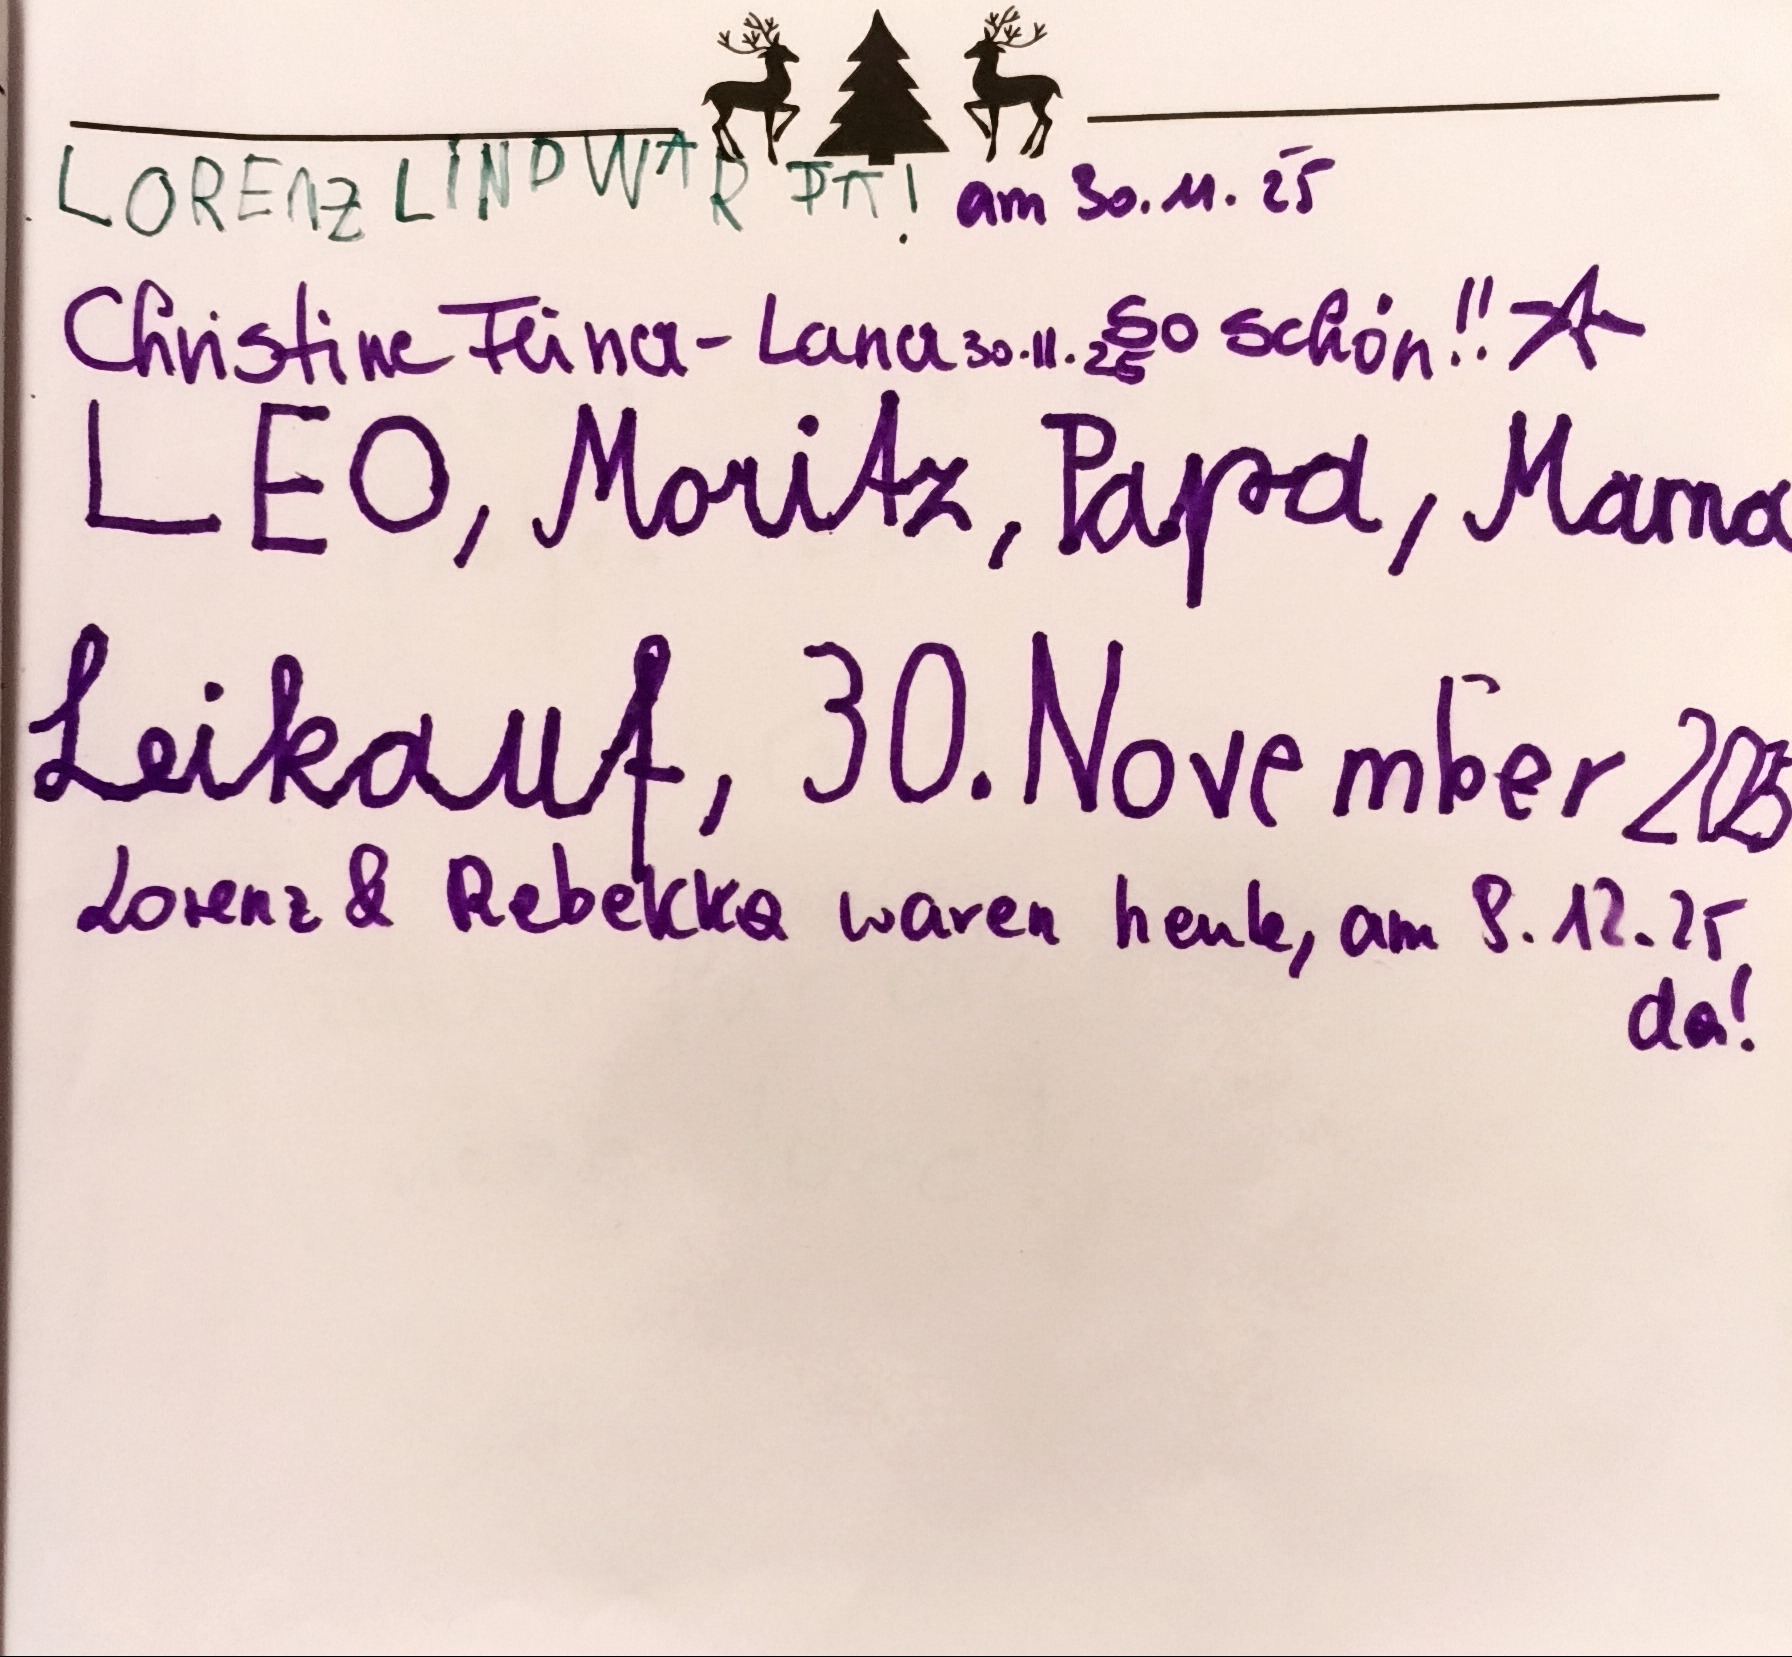 LORENZ LIND WAR DA! am 30.11.25
Christine Feiner-Lana 30.11.25 So schön!!
LEO, Moritz, Papa, Mama
Leikauf, 30. November 2025
Lorenz & Rebekka waren heute, am 8.12.25
da!